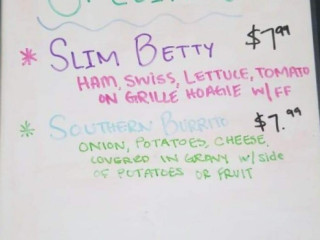 * SLIM BETTY $7.99
HAM, SWISS, LETTUCE, TOMATO
ON GRILLE HOAGIE W/FF
* SOUTHERN BURRITO $7.99
ONION, POTATOES, CHEESE,
COVERED IN GRAVY W/side
OF POTATOES OR FRUIT